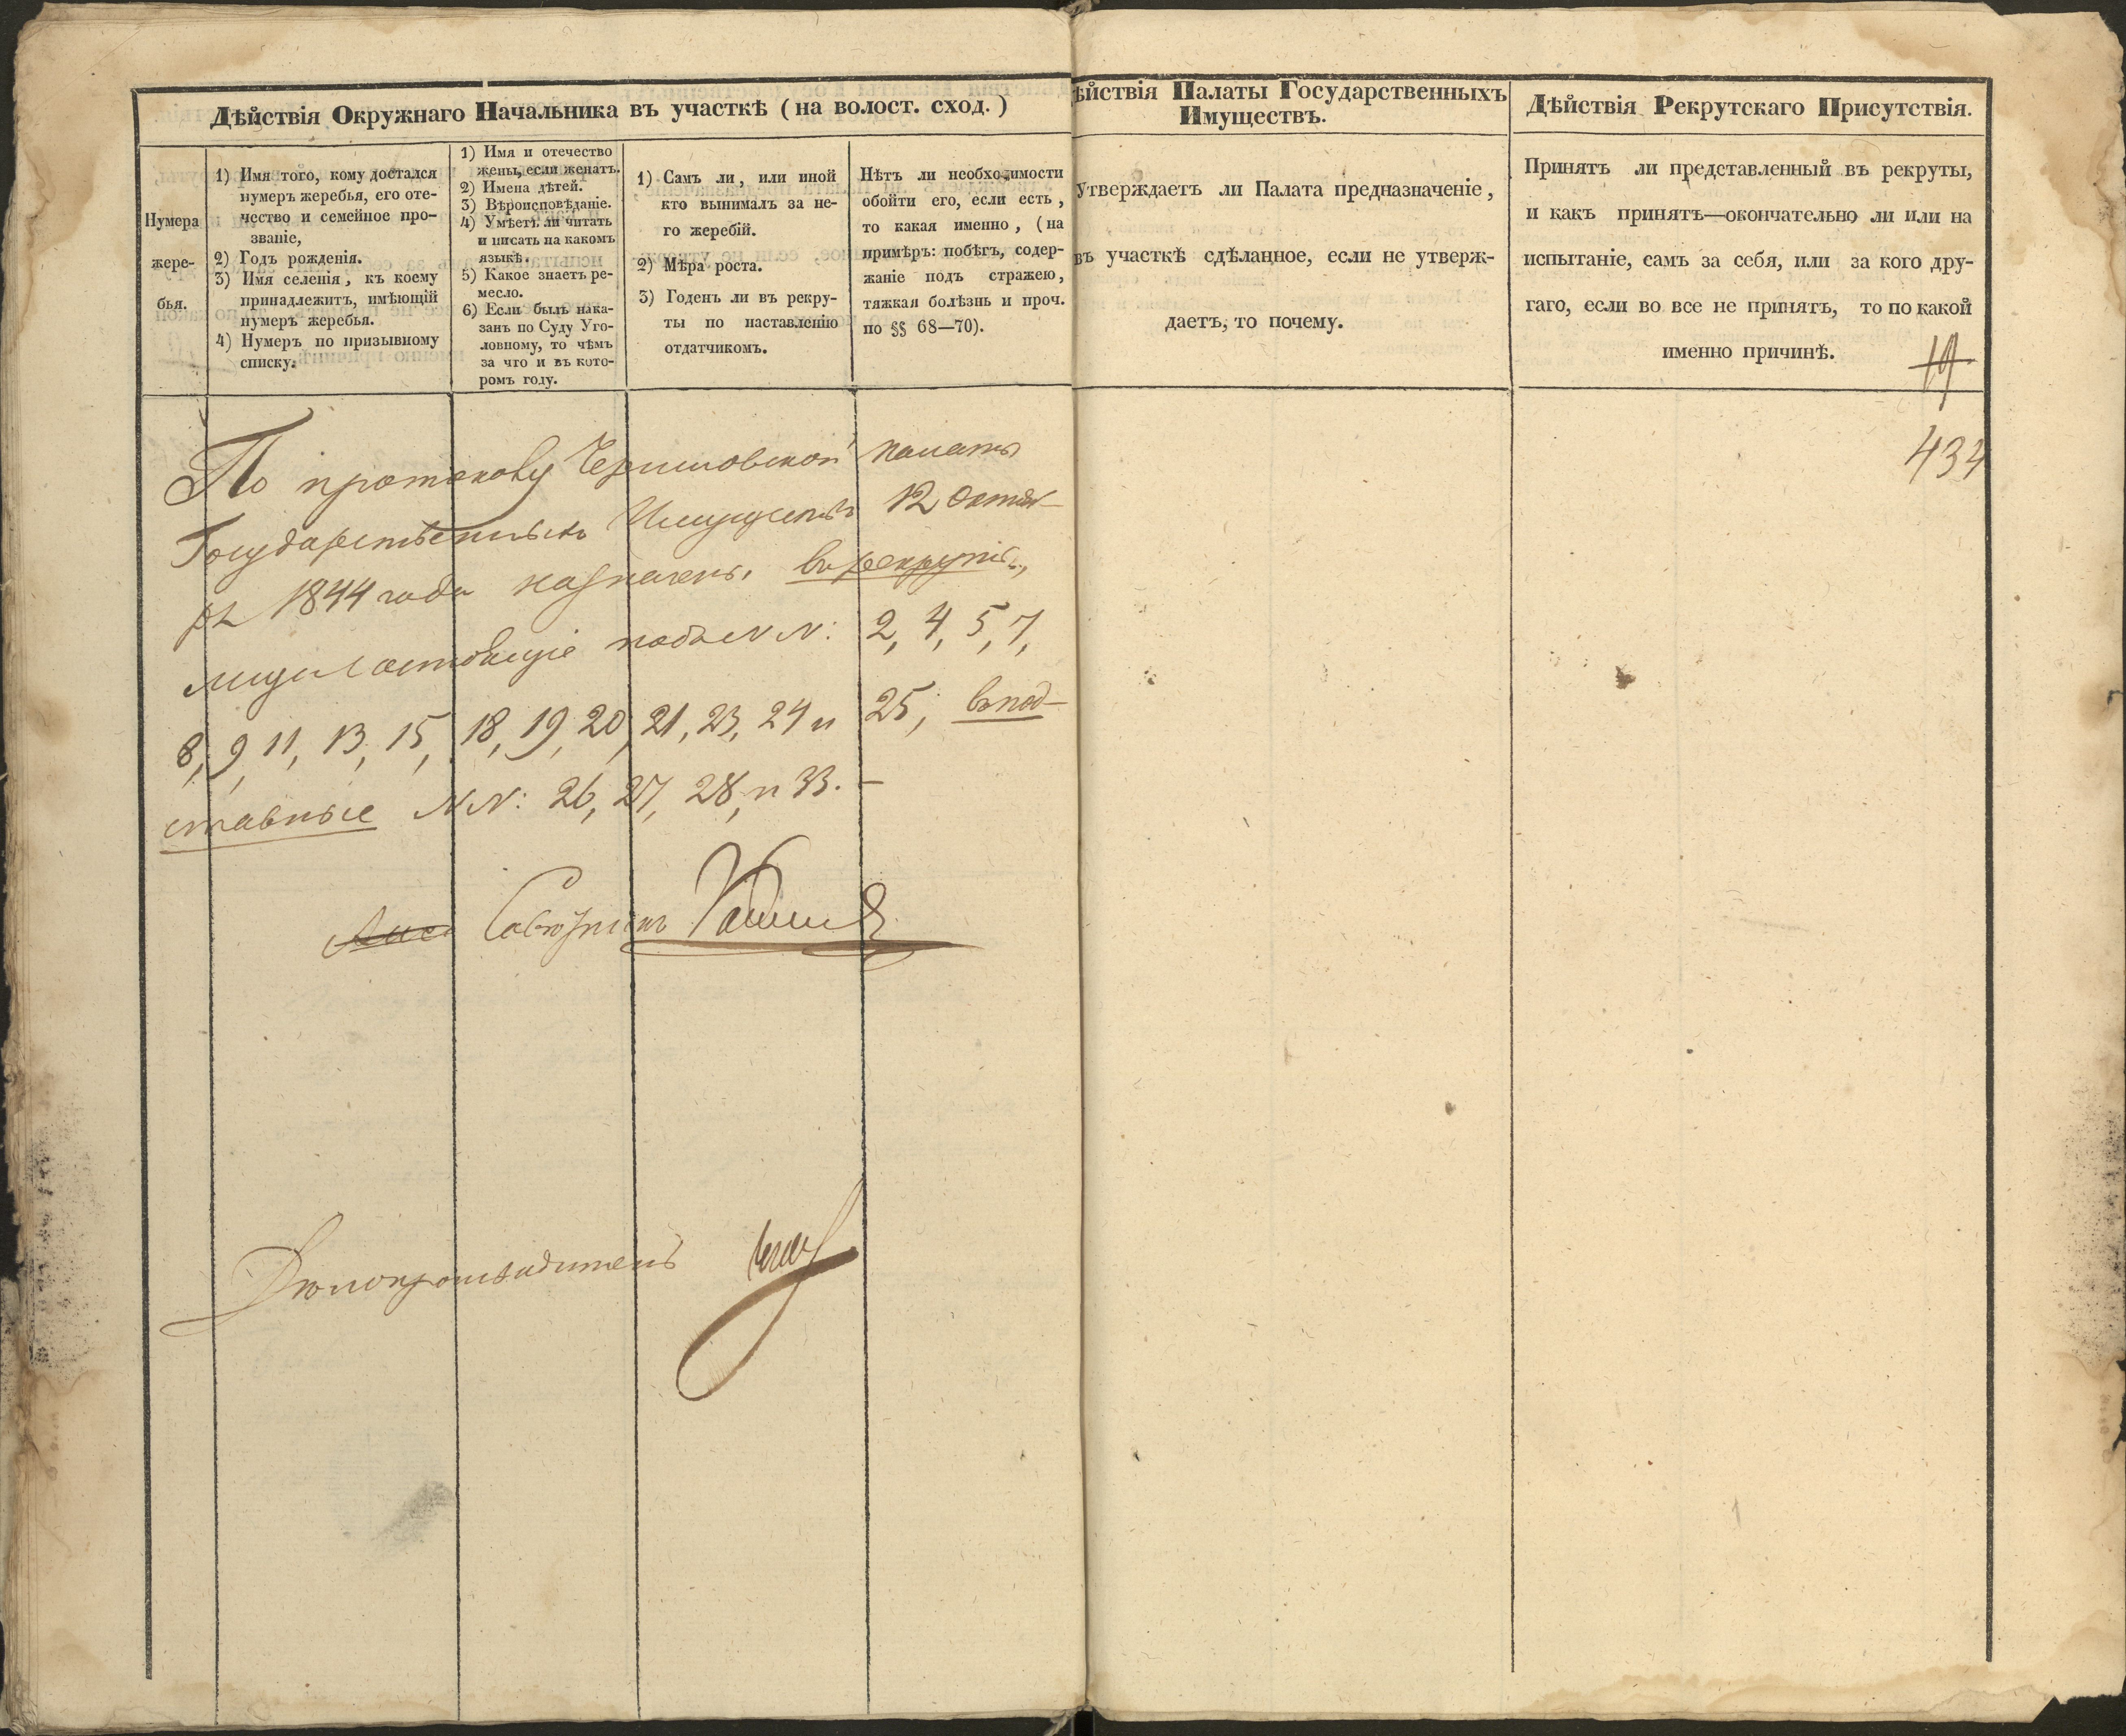 Дѣйствія Окружнаго Начальника въ участкѣ (на волост. сход.)
Нумера
жере-
бья.
1) Имя того, кому достался
нумеръ жеребья, его оте-
чество и семейное про-
званіе,
2) Годъ рожденія.
3) Имя селенія, къ коему
принадлежитъ, имѣющій
нумеръ жеребья.
4) Нумеръ по призывному
списку.
1) Имя и отечество
жены, если женатъ.
2) Имена дѣтей.
3) Вѣроисповѣданіе.
4) Умѣетъ ли читать
и писать на какомъ
языкѣ.
5) Какое знаетъ ре-
месло.
6) Если былъ нака-
занъ по Суду Уго-
ловному, то чѣмъ
за что и въ кото-
ромъ году.
1) Самъ ли, или иной
кто вынималъ за не-
го жеребій.
2) Мѣра роста.
3) Годенъ ли въ рекру-
ты по наставленію
отдатчикомъ.
Нѣтъ ли необходимости
обойти его, если есть,
то какая именно, (на
примѣръ: побѣгъ, содер-
жаніе подъ стражею,
тяжкая болѣзнь и проч.
по §§ 68—70).
По протоколу Черниговской палаты
Государственныхъ Имуществъ 12 Октяб-
ря 1844 года назначены въ рекруты,
лица состоящіе подъ NN: 2, 4, 5, 7,
8, 9, 11, 13, 15, 18, 19, 20, 21, 23, 24 и 25, въ под-
ставные NN: 26, 27, 28, и 33. —
Совѣтникъ
Дѣлопроизводитель
ѣйствія Палаты Государственныхъ
Имуществъ.
Утверждаетъ ли Палата предназначеніе,
въ участкѣ сдѣланное, если не утверж-
даетъ, то почему.
Дѣйствія Рекрутскаго Присутствія.
Принятъ ли представленный въ рекруты,
и какъ принятъ—окончательно ли или на
испытаніе, самъ за себя, или за кого дру-
гаго, если во все не принятъ, то по какой
именно причинѣ.
434